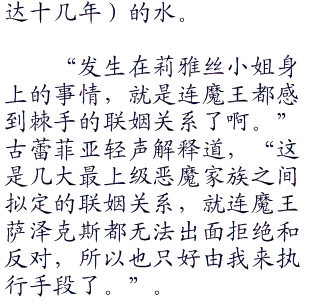 达十几年）的水。
“发生在莉雅丝小姐身
上的事情，就是连魔王都感
到棘手的联姻关系了啊。”
古蕾菲亚轻声解释道，“这
是几大最上级恶魔家族之间
拟定的联姻关系，就连魔王
萨泽克斯都无法出面拒绝和
反对，所以也只好由我来执
行手段了。”。